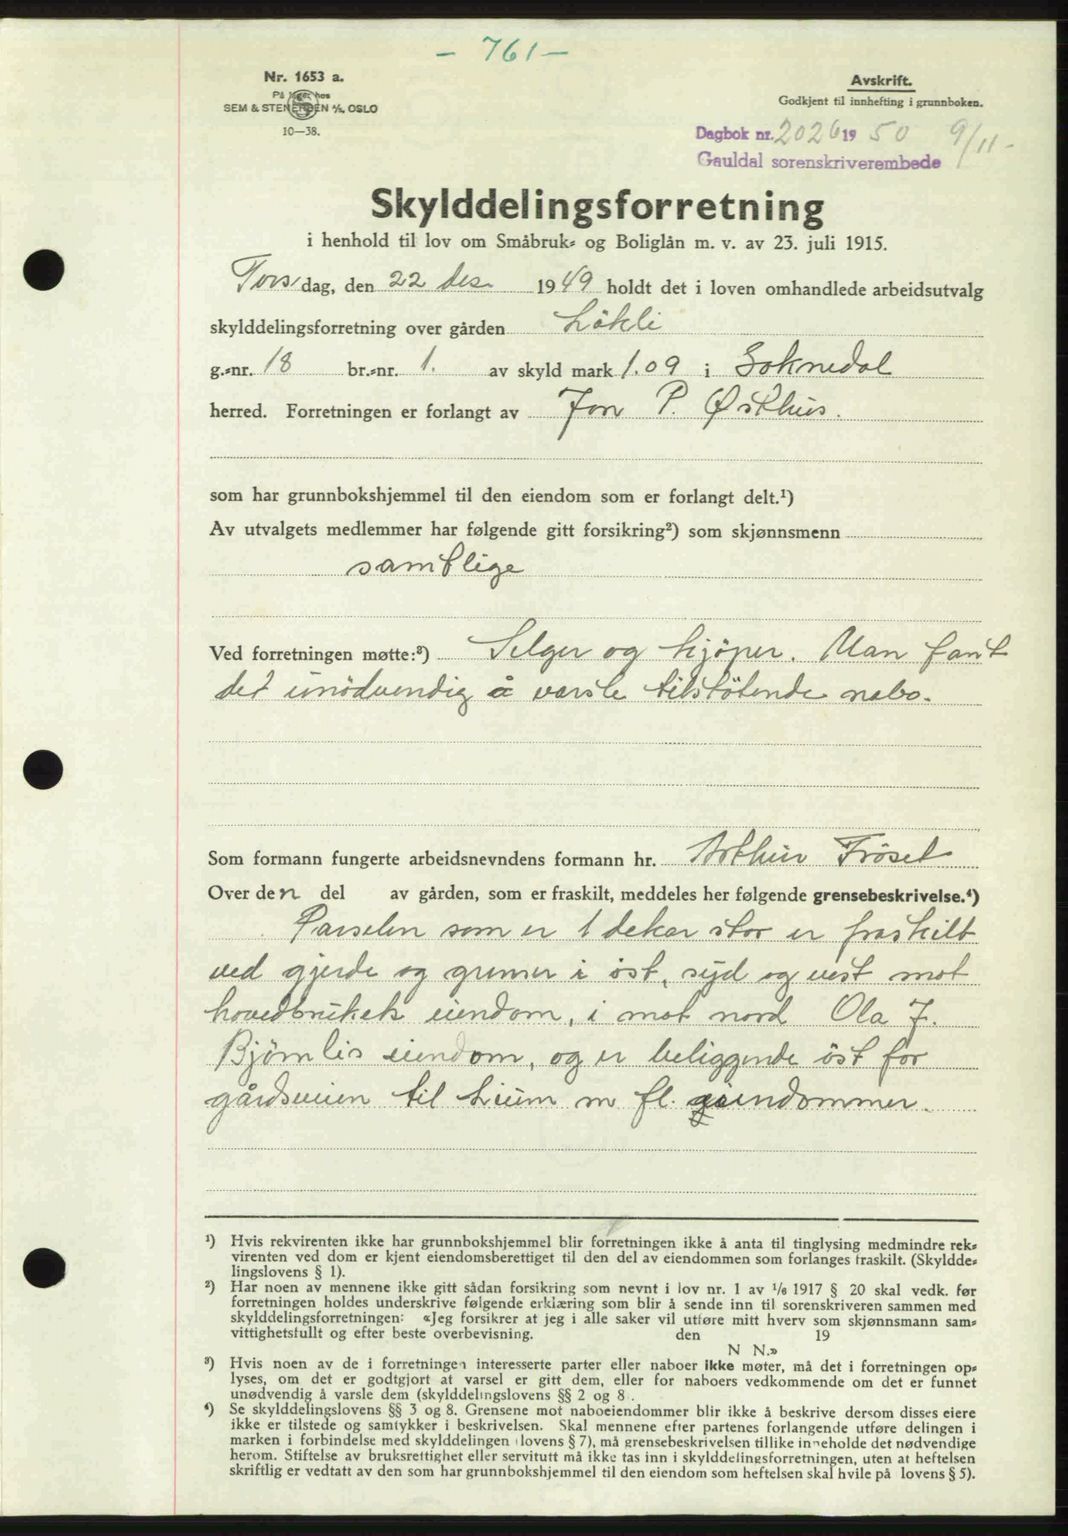 - 761 -
Nr. 1653 a.
På lager hos
SEM & STENERSEN A/S, OSLO
10—38.
Avskrift.
Godkjent til innhefting i grunnboken.
Dagbok nr. 2026 19 50 9/11-
Gauldal sorenskriverembede
Skylddelingsforretning
i henhold til lov om Småbruk- og Boliglån m. v. av 23. juli 1915.
Torsdag, den 22 des 1949 holdt det i loven omhandlede arbeidsutvalg
skylddelingsforretning over gården Lökli
g.-nr. 18 br.-nr. 1. av skyld mark 1.09 i Soknedal
herred. Forretningen er forlangt av Jon P. Østhus.
som har grunnbokshjemmel til den eiendom som er forlangt delt.¹)
Av utvalgets medlemmer har følgende gitt forsikring²) som skjønnsmenn
samtlige
Ved forretningen møtte:³) Selger og kjöper. Man fant
det unödvendig å varsle tilstötende nabo.
Som formann fungerte arbeidsnevndens formann hr. Arthur Fröset
Over den del av gården, som er fraskilt, meddeles her følgende grensebeskrivelse.⁴)
Parselen som er 1 dekar stor er fraskilt
ved gjerde og grenser i öst, syd og vest mot
hovedbrukets eiendom, i mot nord Ola J.
Bjørnlis eiendom, og er beliggende öst for
gårdsveien til Lium m fl. eiendommer.
¹) Hvis rekvirenten ikke har grunnbokshjemmel blir forretningen ikke å anta til tinglysing medmindre rek-
virenten ved dom er kjent eiendomsberettiget til den del av eiendommen som forlanges fraskilt. (Skyldde-
lingslovens § 1).
²) Har noen av mennene ikke gitt sådan forsikring som nevnt i lov nr. 1 av 1/6 1917 § 20 skal vedk. før
forretningen holdes underskrive følgende erklæring som blir å sende inn til sorenskriveren sammen med
skylddelingsforretningen: «Jeg forsikrer at jeg i alle saker vil utføre mitt hverv som skjønnsmann sam-
vittighetsfullt og efter beste overbevisning. den 19
N N.»
³) Hvis noen av de i forretningen interesserte parter eller naboer ikke møter, må det i forretningen op-
lyses, om det er godtgjort at varsel er gitt dem, eller for naboers vedkommende om det er funnet
unødvendig å varsle dem (skylddelingslovens §§ 2 og 8.
⁴) Se skylddelingslovens §§ 3 og 8. Grensene mot naboeiendommer blir ikke å beskrive dersom disses eiere
ikke er tilstede og samtykker i beskrivelsen. Skal mennene efter partenes forlangende utføre delingen i
marken i forbindelse med skylddelingen (lovens § 7), må grensebeskrivelsen tillike inneholde det nødvendige
herom. Stiftelse av bruksrettighet eller servitutt må ikke tas inn i skylddelingsforretningen, uten at heftelsen
skriftlig er vedtatt av den som har grunnbokshjemmel til den eiendom som heftelsen skal hvile på lovens § 5).